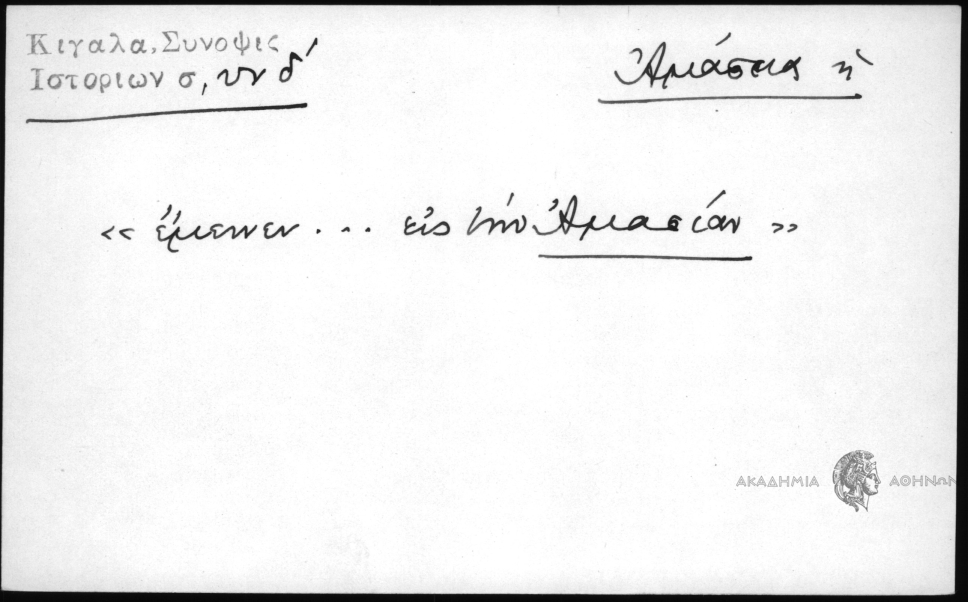 Κιγαλα, Συνοψις
Ιστοριων σ, υν δ'
Ἀμάσεια ἡ
«ἔμεινεν ... εἰς τὴν Ἀμασείαν»
ΑΚΑΔΗΜΙΑ ΑΘΗΝΩΝ